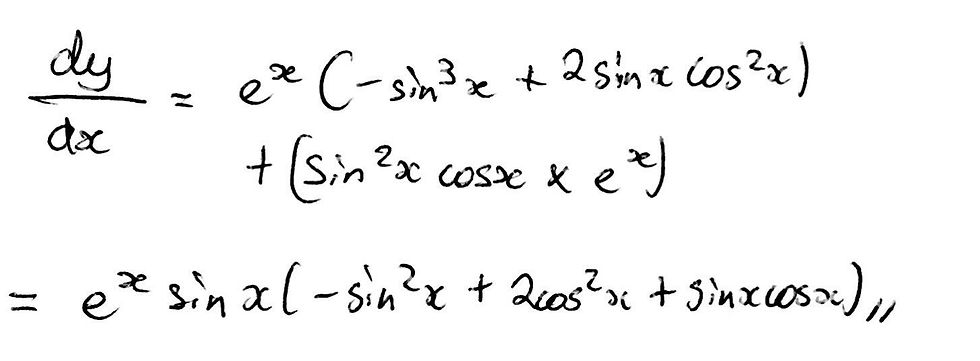 dy/dx = eˣ (-sin³x + 2sinx cos²x)
+ (sin²x cosx × eˣ)
= eˣ sin x (-sin²x + 2cos²x + sinx cosx) //